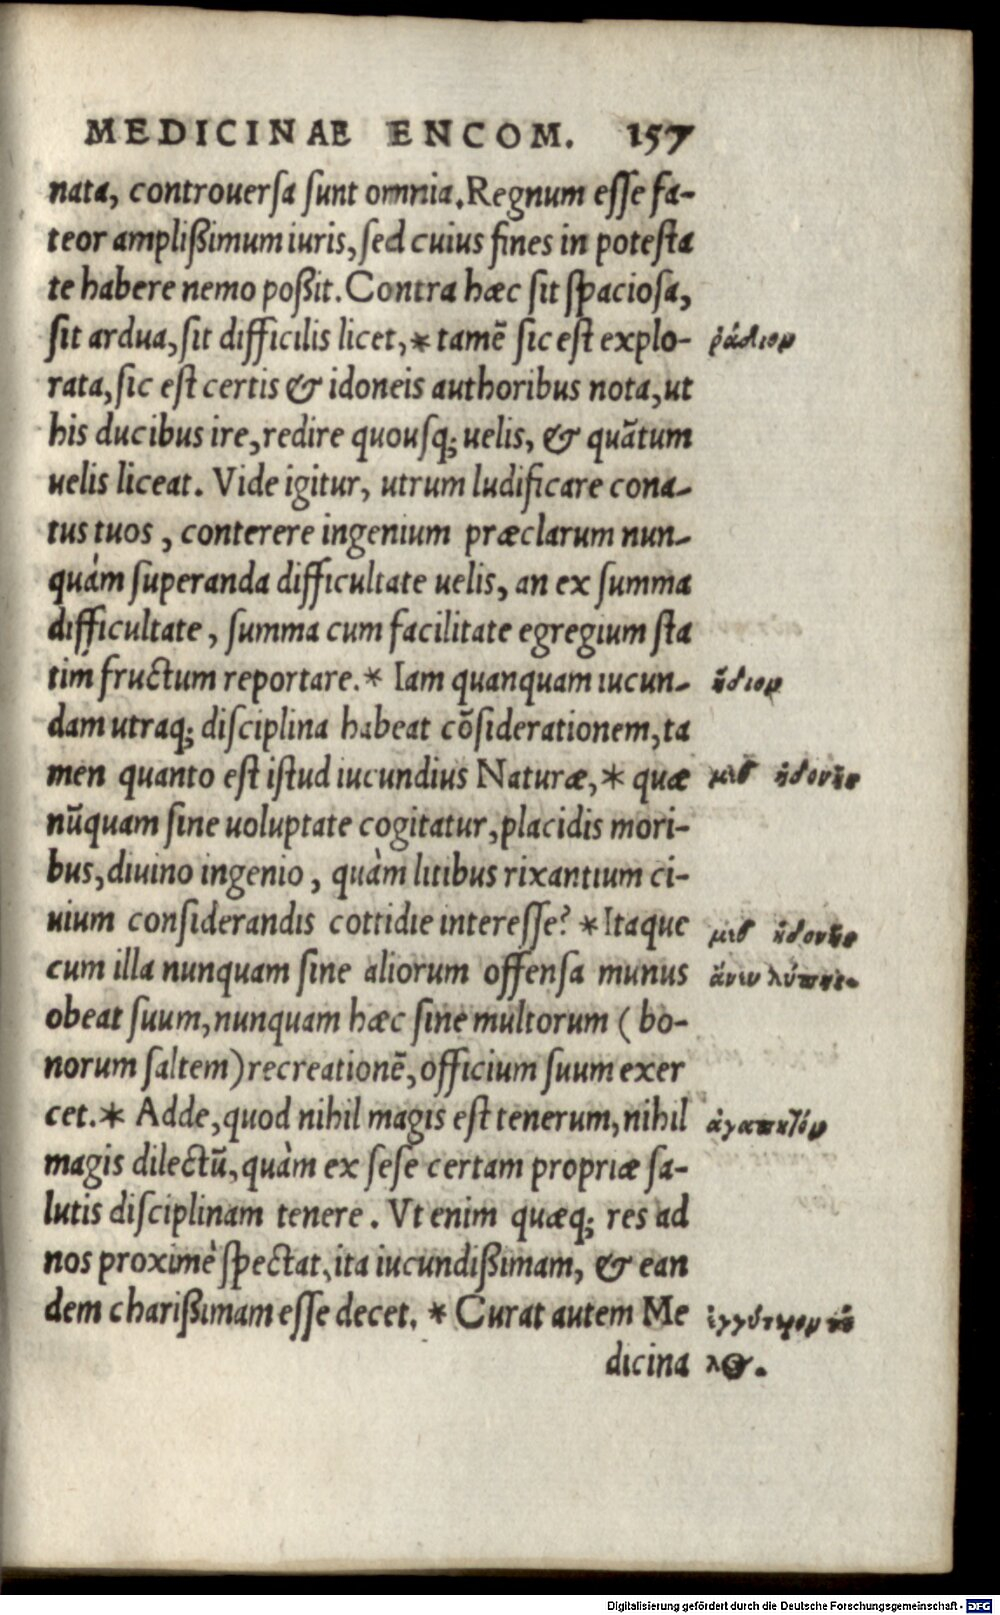 MEDICINAE ENCOM. 157
nata, controuerſa ſunt omnia. Regnum eſſe fa-
teor amplißimum iuris, ſed cuius fines in poteſta
te habere nemo poßit. Contra hæc ſit ſpacioſa,
ſit ardua, ſit difficilis licet, * tamẽ ſic eſt explo- ῥᾴδιον
rata, ſic eſt certis & idoneis authoribus nota, ut
his ducibus ire, redire quouſq; uelis, & quãtum
uelis liceat. Vide igitur, utrum ludificare cona-
tus tuos, conterere ingenium præclarum nun-
quàm ſuperanda difficultate uelis, an ex ſumma
difficultate, ſumma cum facilitate egregium ſta
tim fructum reportare. * Iam quanquam iucun- ἥδιον
dam utraq; diſciplina habeat cõſiderationem, ta
men quanto eſt iſtud iucundius Naturæ, * quæ μεθ ἡδονῆς
nũquam ſine uoluptate cogitatur, placidis mori-
bus, diuino ingenio, quàm litibus rixantium ci-
uium conſiderandis cottidie intereſſe? * Itaque μεθ ἡδονῆς
cum illa nunquam ſine aliorum offenſa munus ἄνευ λύπης.
obeat ſuum, nunquam hæc ſine multorum (bo-
norum ſaltem) recreationẽ, officium ſuum exer
cet. * Adde, quod nihil magis eſt tenerum, nihil ἀγαπητόν
magis dilectũ, quàm ex ſeſe certam propriæ ſa-
lutis diſciplinam tenere. Vt enim quæq; res ad
nos proximè ſpectat, ita iucundißimam, & ean
dem charißimam eſſe decet. * Curat autem Me
dicina
Digitalisierung gefördert durch die Deutsche Forschungsgemeinschaft - DFG